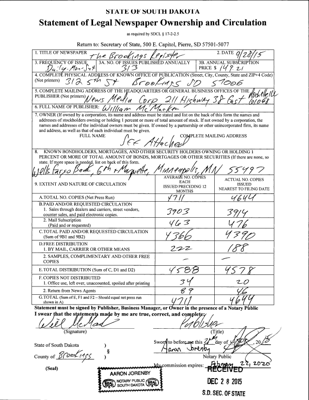 STATE OF SOUTH DAKOTA
Statement of Legal Newspaper Ownership and Circulation
as required by SDCL § 17-2-2.5
Return to: Secretary of State, 500 E. Capitol, Pierre, SD 57501-5077
1. TITLE OF NEWSPAPER The Brookings Register 2. DATE
3. FREQUENCY OF ISSUE 3A. NO. OF ISSUES PUBLISHED ANNUALLY 3B. ANNUAL SUBSCRIPTION
313 PRICE $ 149.21
4. COMPLETE PHYSICAL ADDRESS OF KNOWN OFFICE OF PUBLICATION (Street, City, County, State and ZIP+4 Code)
(Not printers) 312 5th St Brookings SD 57006
5. COMPLETE MAILING ADDRESS OF THE HEADQUARTERS OR GENERAL BUSINESS OFFICES OF THE
PUBLISHER (Not printers) News Media Corp 211 Highway 38 East
6. FULL NAME OF PUBLISHER: William McMacken
7. OWNER (If owned by a corporation, its name and address must be stated and also immediately thereafter the names and
addresses of stockholders owning or holding 1 percent or more of total amount of stock. If not owned by a corporation, the
names and addresses of the individual owners must be given. If owned by a partnership or other unincorporated firm, its name
and address, as well as that of each individual must be given.
FULL NAME COMPLETE MAILING ADDRESS
See Attached
8. KNOWN BONDHOLDERS, MORTGAGES, AND OTHER SECURITY HOLDERS OWNING OR HOLDING 1
PERCENT OR MORE OF TOTAL AMOUNT OF BONDS, MORTGAGES OR OTHER SECURITIES (If there are none, so
state. If more space is needed, list on back of this form.
Wells Fargo Bank, 6th & Marquette, Minneapolis, MN 55479
9. EXTENT AND NATURE OF CIRCULATION
AVERAGE NO. COPIES EACH ISSUED PRECEDING 12 MONTHS
ACTUAL NO. COPIES ISSUED NEAREST TO FILING DATE
A. TOTAL NO. COPIES (Net Press Run) 4711 4644
B. PAID AND/OR REQUESTED CIRCULATION
1. Sales through dealers and carriers, street vendors,
counter sales, and paid electronic copies. 3903 3914
2. Mail Subscription
(Paid and or requested) 463 476
C. TOTAL PAID AND/OR REQUESTED CIRCULATION
(Sum of 9B1 and 9B2) 4366 4390
D. FREE DISTRIBUTION
1. BY MAIL, CARRIER OR OTHER MEANS 222 188
2. SAMPLES, COMPLIMENTARY AND OTHER FREE
COPIES
E. TOTAL DISTRIBUTION (Sum of C, D1 and D2) 4588 4578
F. COPIES NOT DISTRIBUTED
1. Office use, left over, unaccounted, spoiled after printing 34 20
2. Return from News Agents 89 46
G. TOTAL (Sum of E, F1 and F2 - Should equal net press run
shown in A) 4711 4644
Statement must be signed by Publisher, Business Manager, or Owner in the presence of a Notary Public
I swear that the statements made by me are true, correct, and complete:
Publisher
(Signature) (Title)
State of South Dakota
County of Brookings
Sworn to before me this day of 2015
Notary Public
(Seal)
My commission expires: 22, 2020
AARON JORENBY
NOTARY PUBLIC
SOUTH DAKOTA
RECEIVED
DEC 28 2015
S.D. SEC. OF STATE